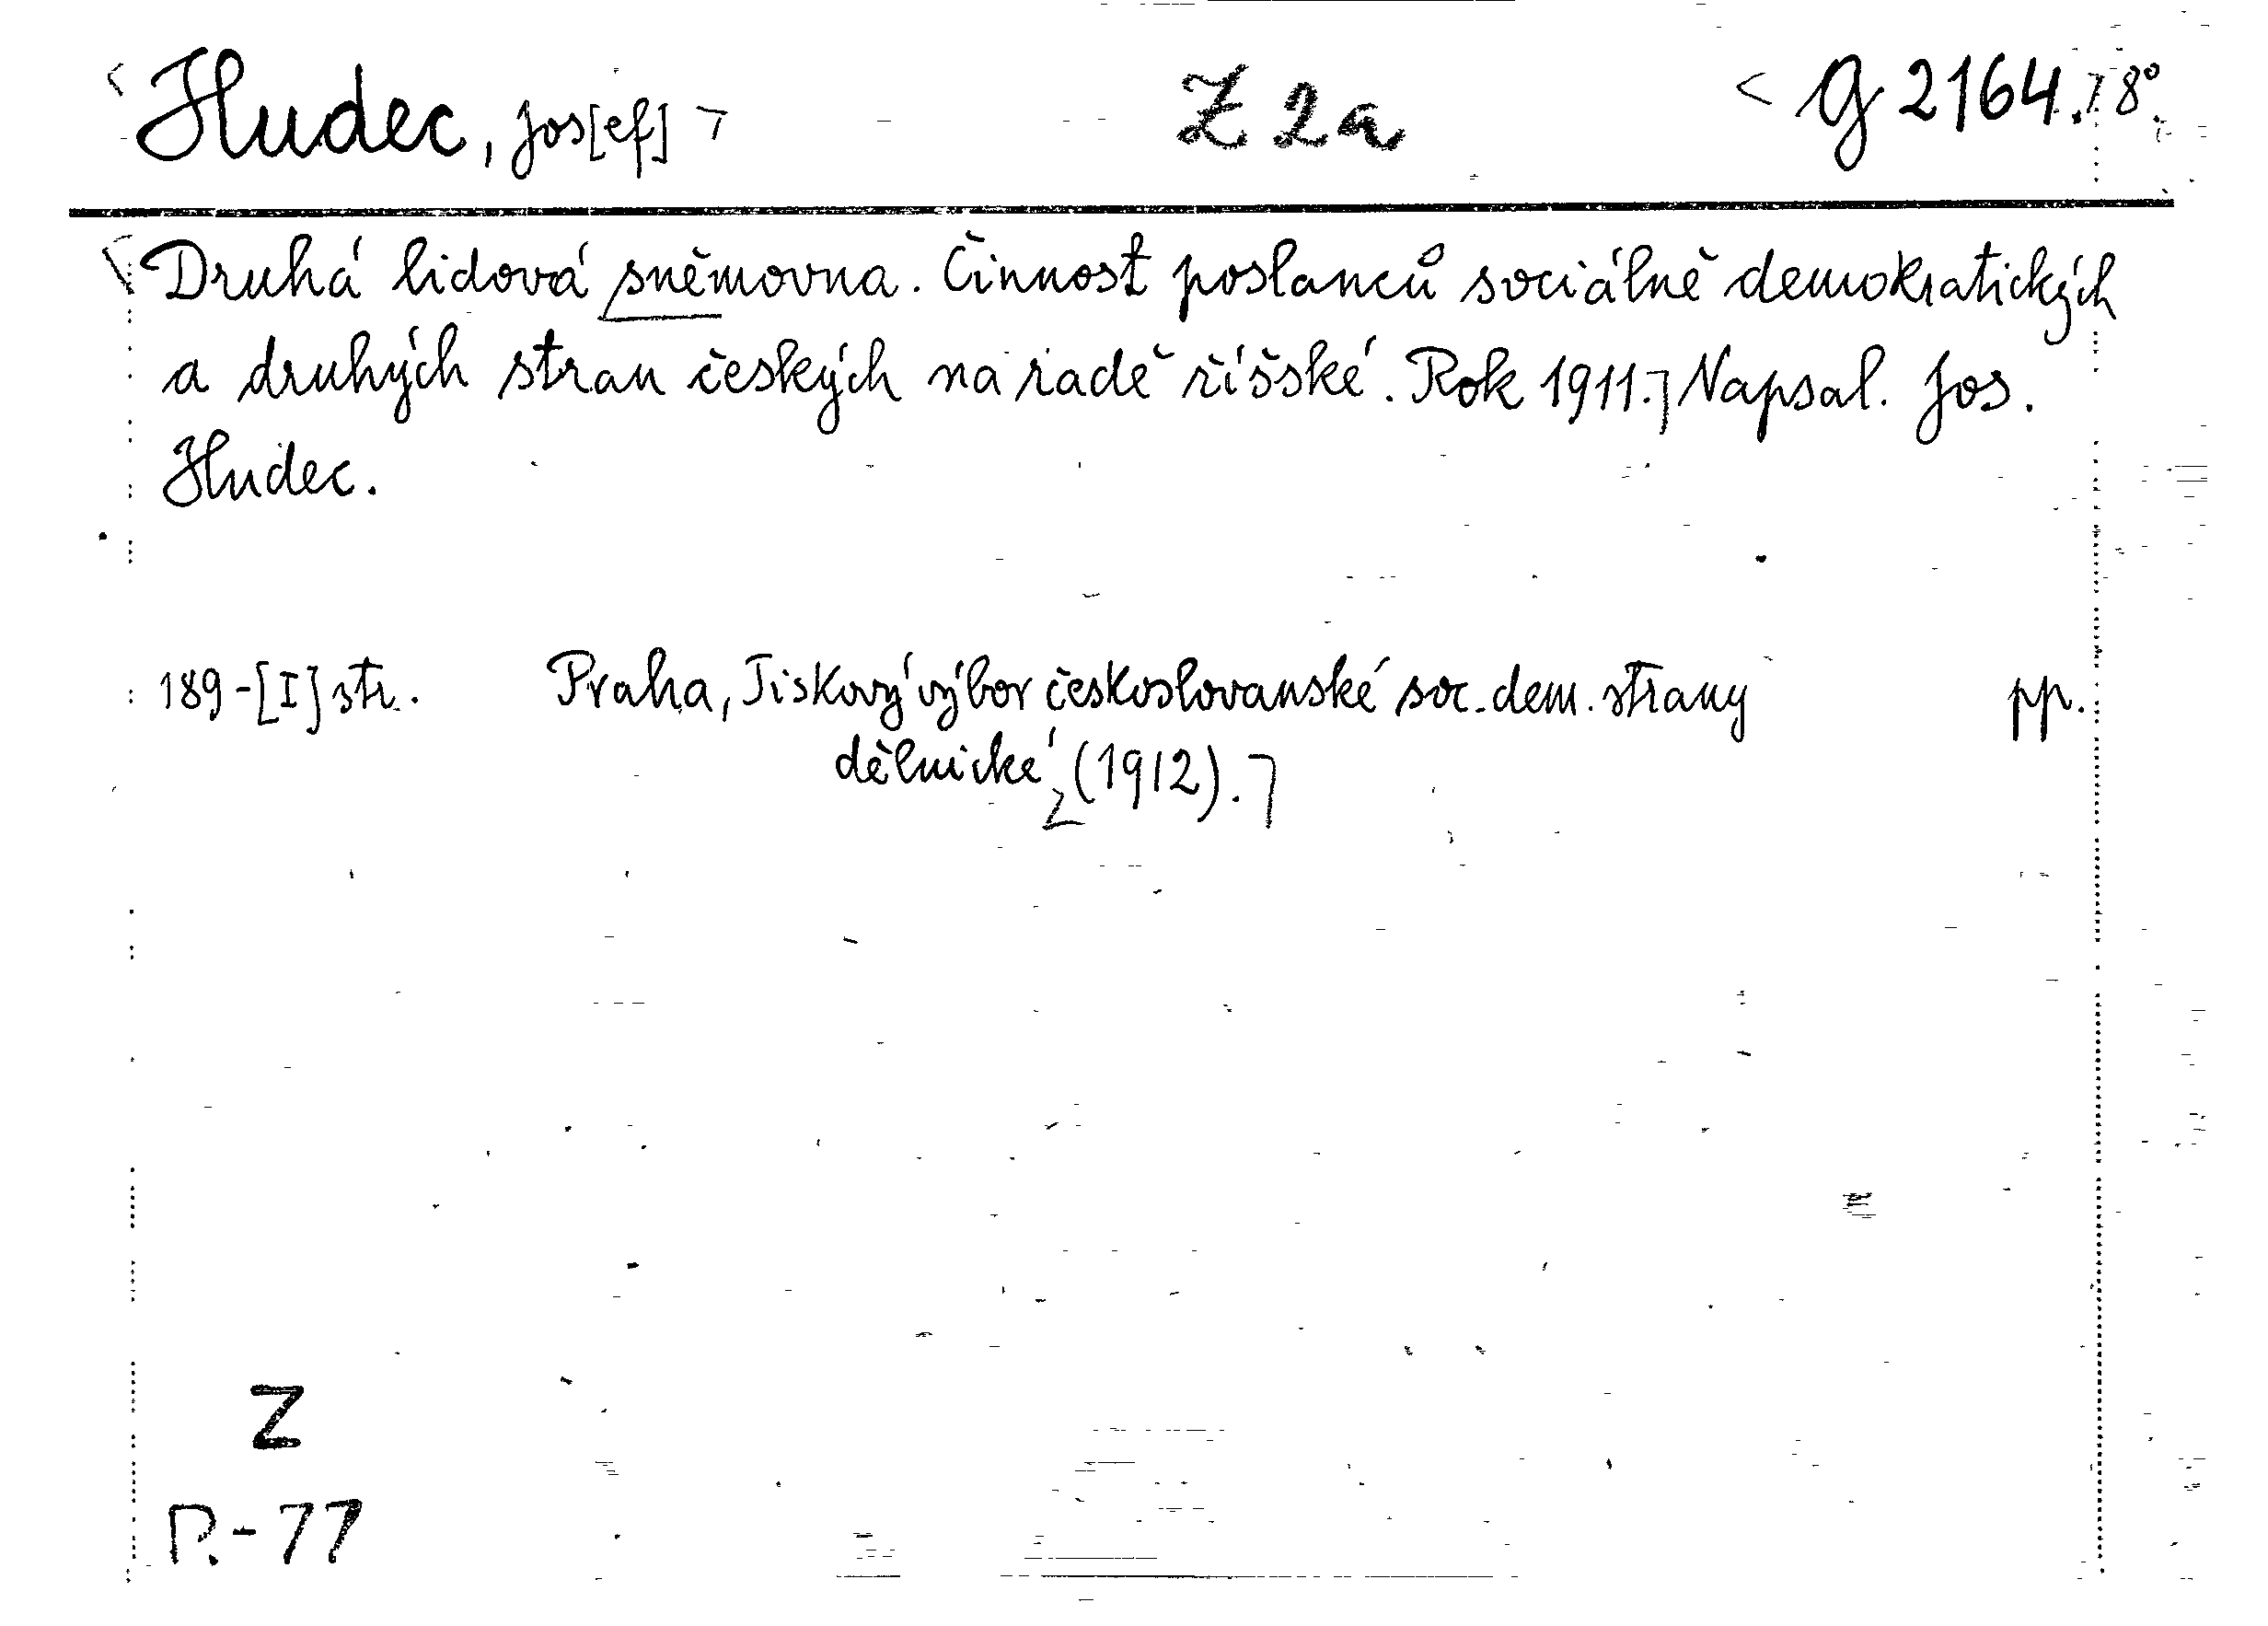 Hudec, Jos[ef] Z 2a G 2164. 8°.
Druhá lidová sněmovna. Činnost poslanců sociálně demokratických
a druhých stran českých na radě říšské. Rok 1911. Napsal. Jos.
Hudec.
189-[I] str. Praha, Tiskový výbor českoslovanské soc. dem. strany pp.
dělnické (1912).
Z
P.-77